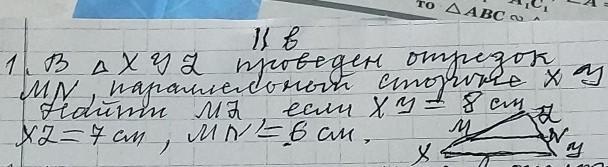 то △ABC ∾
A₁C₁
II в
1. В △ XYZ проведен отрезок
MN, параллельный стороне XY
Найти MZ, если XY = 8 см,
XZ = 7 см, MN = 6 см.
M Z N
X Y